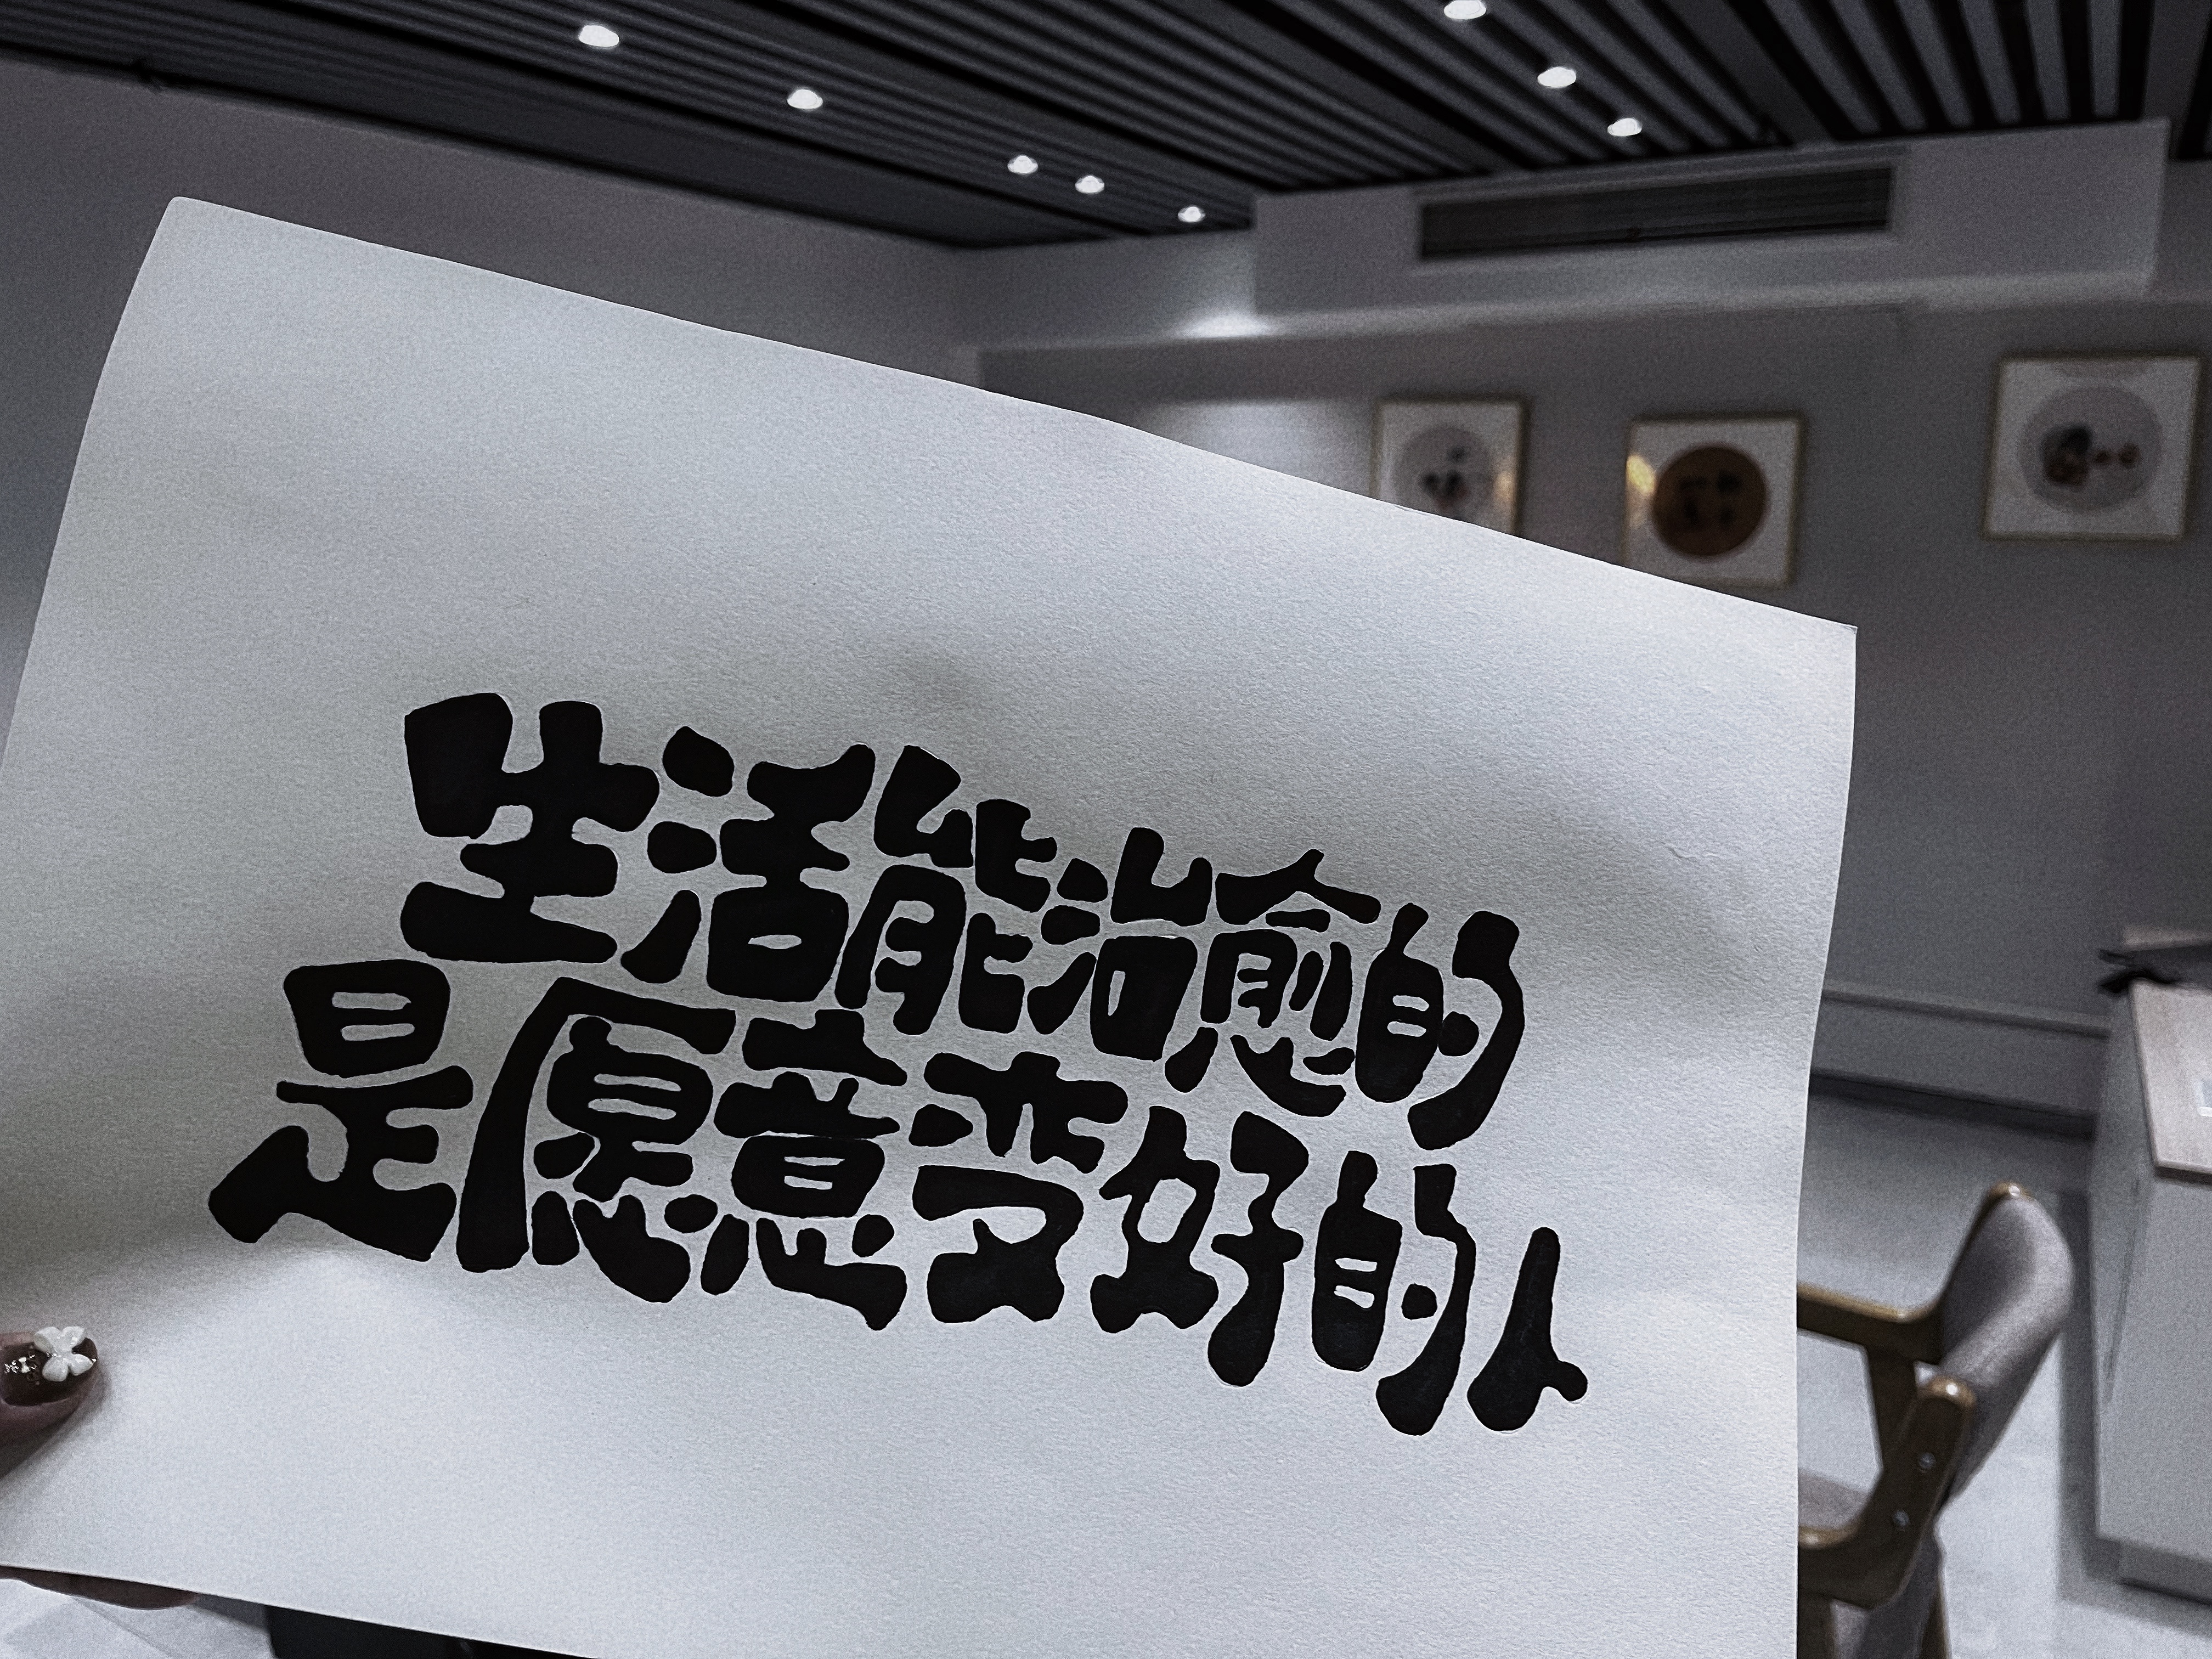 生活能治愈的
是愿意变好的人